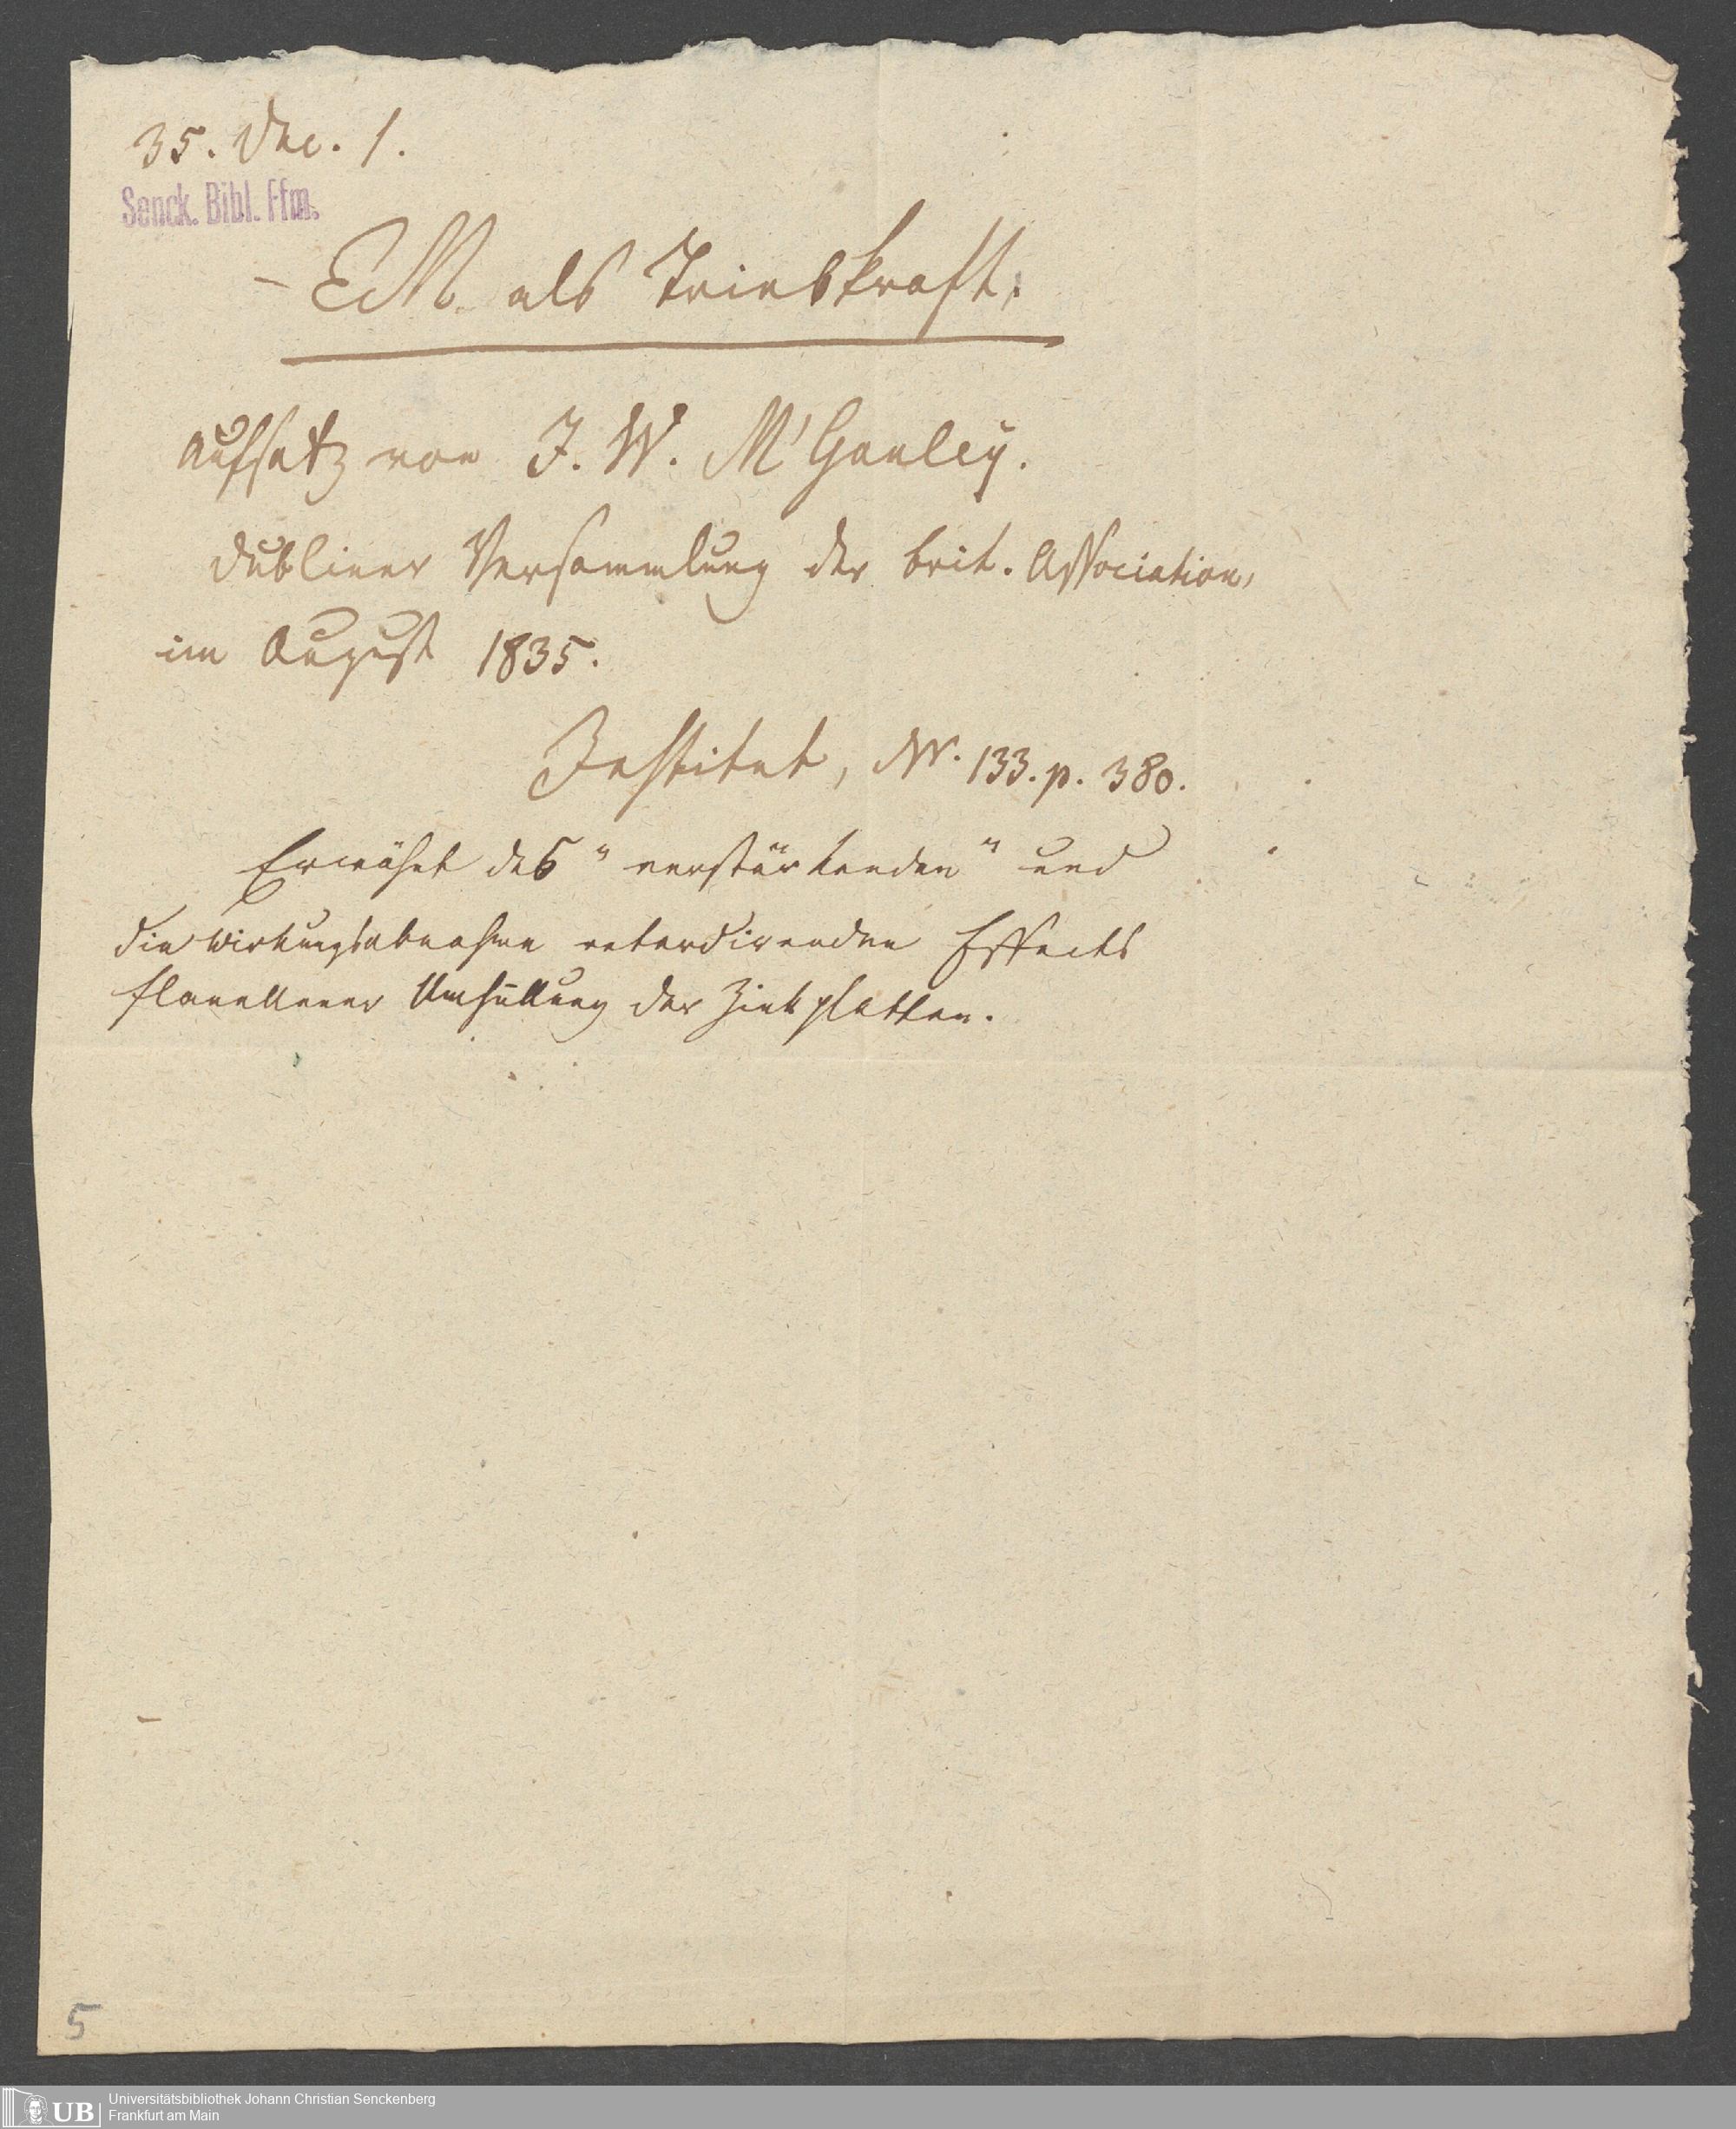 35. Dec. 1.
Senck. Bibl. Ffm.
– EM. als Triebkraft.
Aufsatz von J. W. M'Gauley.
Dubliner Versammlung der brit. Association,
im August 1835.
Institut, Nr. 133. p. 380.
Erwähnt des "verstärkenden" und
die Wirkungsabnahme retardirenden Effects
flanellener Umhüllung der Zinkplatten.
5
UB Universitätsbibliothek Johann Christian Senckenberg
Frankfurt am Main